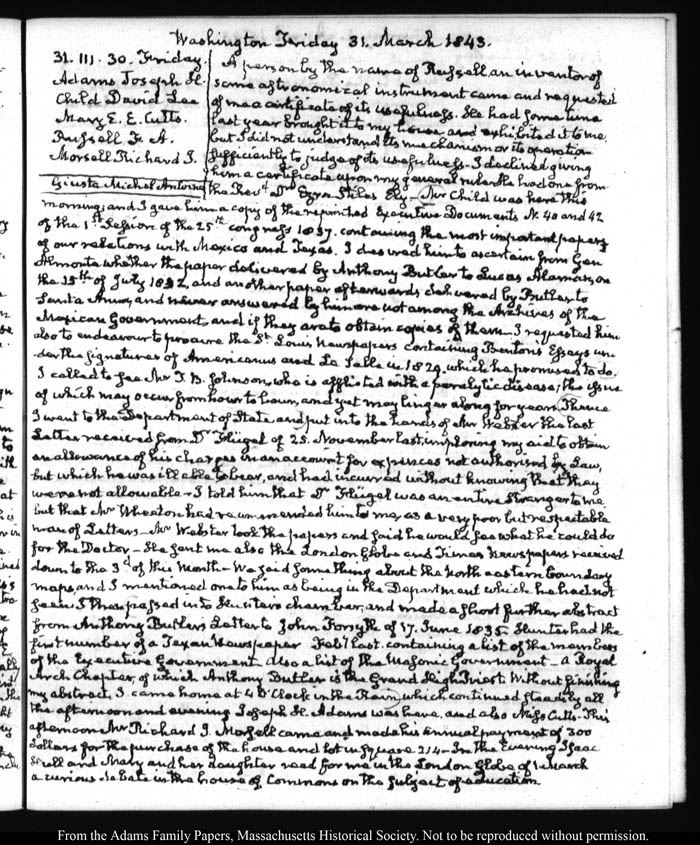 Washington Friday 31. March 1843.
31. III. 30. Friday.
Adams Joseph H.
Child David Lee
Mary E. E. Cutts.
Russell F. A.
Morsell Richard J.
Giusta Michel Antoine
A person by the name of Russell an inventor of
some astronomical instrument came and requested
of me a certificate of its usefulness. He had some time
last year brought it to my house and exhibited it to me,
but I did not understand its mechanism or its operation
sufficiently to judge of its usefulness. I declined giving
him a certificate upon my general rule. He had one from
the Revd. Dr. Ezra Stiles Ely. Mr. Child was here this
morning; and I gave him a copy of the reprinted Executive Documents N. 40 and 42
of the 1st Session of the 25th congress 1837. containing the most important papers
of our relations with Mexico and Texas. I desired him to ascertain from Gen
Almonte whether the paper delivered by Anthony Butler to Lucas Alaman, on
the 15th of July 1832, and another paper afterwards delivered by Butler to
Santa Anna, and never answered by him are not among the Archives of the
Mexican Government, and if they are to obtain copies of them. I requested him
also to endeavour to procure the St. Louis Newspapers containing Bentons Essays un-
der the signatures of Americanus and La Salle in 1829, which he promised to do.
I called to see Mr. J. B. Johnson, who is afflicted with a paralytic disease; the issue
of which may occur from hour to hour, and yet may linger along for years. Thence
I went to the Department of State and put into the hands of Mr. Webster the last
Letter received from Dr. Flügel of 25. November last, imploring my aid to obtain
an allowance of his charges in an account for expences not authorised by Law,
but which he was ill able to bear, and had incurred without knowing that they
were not allowable. I told him that Dr. Flügel was an entire stranger to me
but that Mr. Wheaton had recommended him to me, as a very poor but respectable
man of Letters. Mr. Webster took the papers and said he would see what he could do
for the Doctor. He sent me also the London Globe and Times Newspapers received
down to the 3d of this Month. We said something about the North eastern boundary
maps, and I mentioned one to him as being in the Department which he had not
seen. I then passed into Hunters chamber, and made a short further abstract
from Anthony Butlers Letter to John Forsyth of 17. June 1835. Hunter had the
first number of a Texan Newspaper Feb'y last. containing a list of the members
of the Executive Government. also a list of the Masonic Government. a Royal
Arch Chapter, of which Anthony Butler is the Grand High Priest. Without finishing
my abstract, I came home at 4 O'Clock in the Rain, which continued steadily all
the afternoon and evening. Joseph H. Adams was here, and also Miss Cutts. This
afternoon Mr. Richard J. Morsell came and made his annual payment of 300
dollars for the purchase of the house and lot in square 214. In the Evening Isaac
Hull and Mary and her daughter read for me in the London Globe of 1 March
a curious debate in the house of Commons on the subject of education.
From the Adams Family Papers, Massachusetts Historical Society. Not to be reproduced without permission.